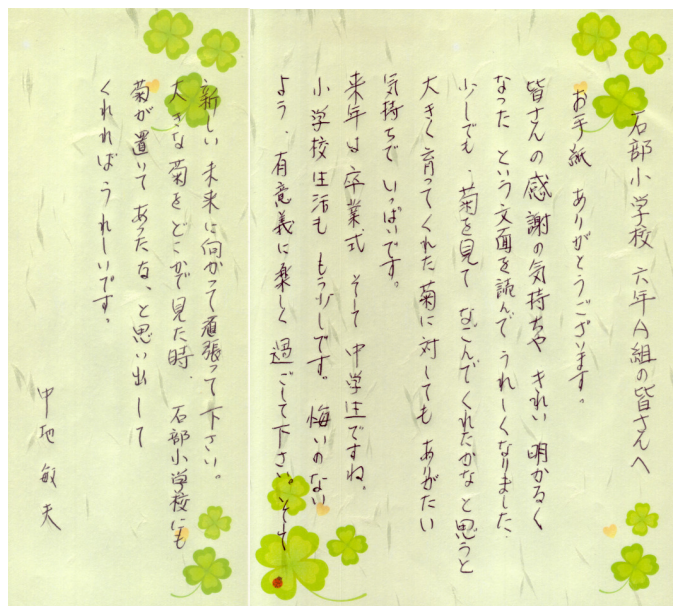 石部小学校 六年A組の皆さんへ
お手紙 ありがとうございます。
皆さんの感謝の気持ちや きれい 明かるく
なった という文面を読んで うれしくなりました.
少しでも、菊を見て なごんでくれたかな と思うと
大きく育ってくれた菊に対しても ありがたい
気持ちで いっぱいです。
来年は卒業式 そして 中学生ですね.
小学校生活も もう少しです。 悔いのない
よう、有意義に楽しく 過ごして下さい。そして
新しい未来に向かって頑張って下さい。
大きな菊を どこかで見た時、石部小学校にも
菊が置いて あったな、と思い出して
くれれば うれしいです。
中地 敏夫